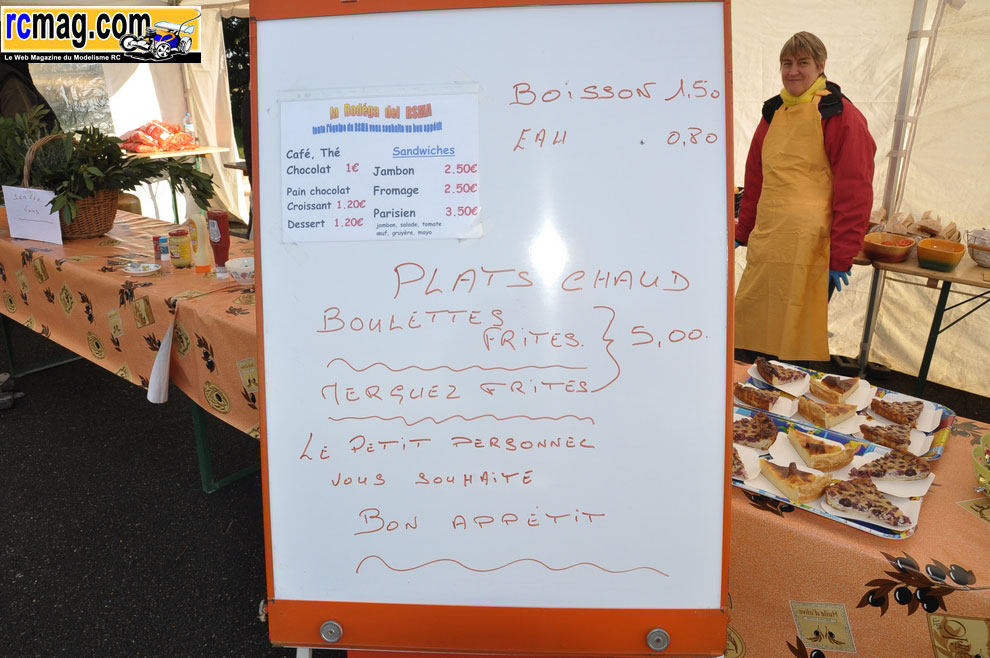 rcmag.com
Le Web Magazine du Modelisme RC
la Bodéga del RSMA
toute l'équipe du RSMA vous souhaite un bon appétit
Café, Thé
Chocolat 1€
Pain chocolat
Croissant 1.20€
Dessert 1.20€
Sandwiches
Jambon 2.50€
Fromage 2.50€
Parisien 3.50€
jambon, salade, tomate
œuf, gruyère, mayo
BOISSON 1,50
EAU . 0,80
PLATS CHAUD
BOULETTES
FRITES. 5,00.
MERGUEZ FRITES
LE PETIT PERSONNEL
VOUS SOUHAITE
BON APPÉTIT
Huile d'olive